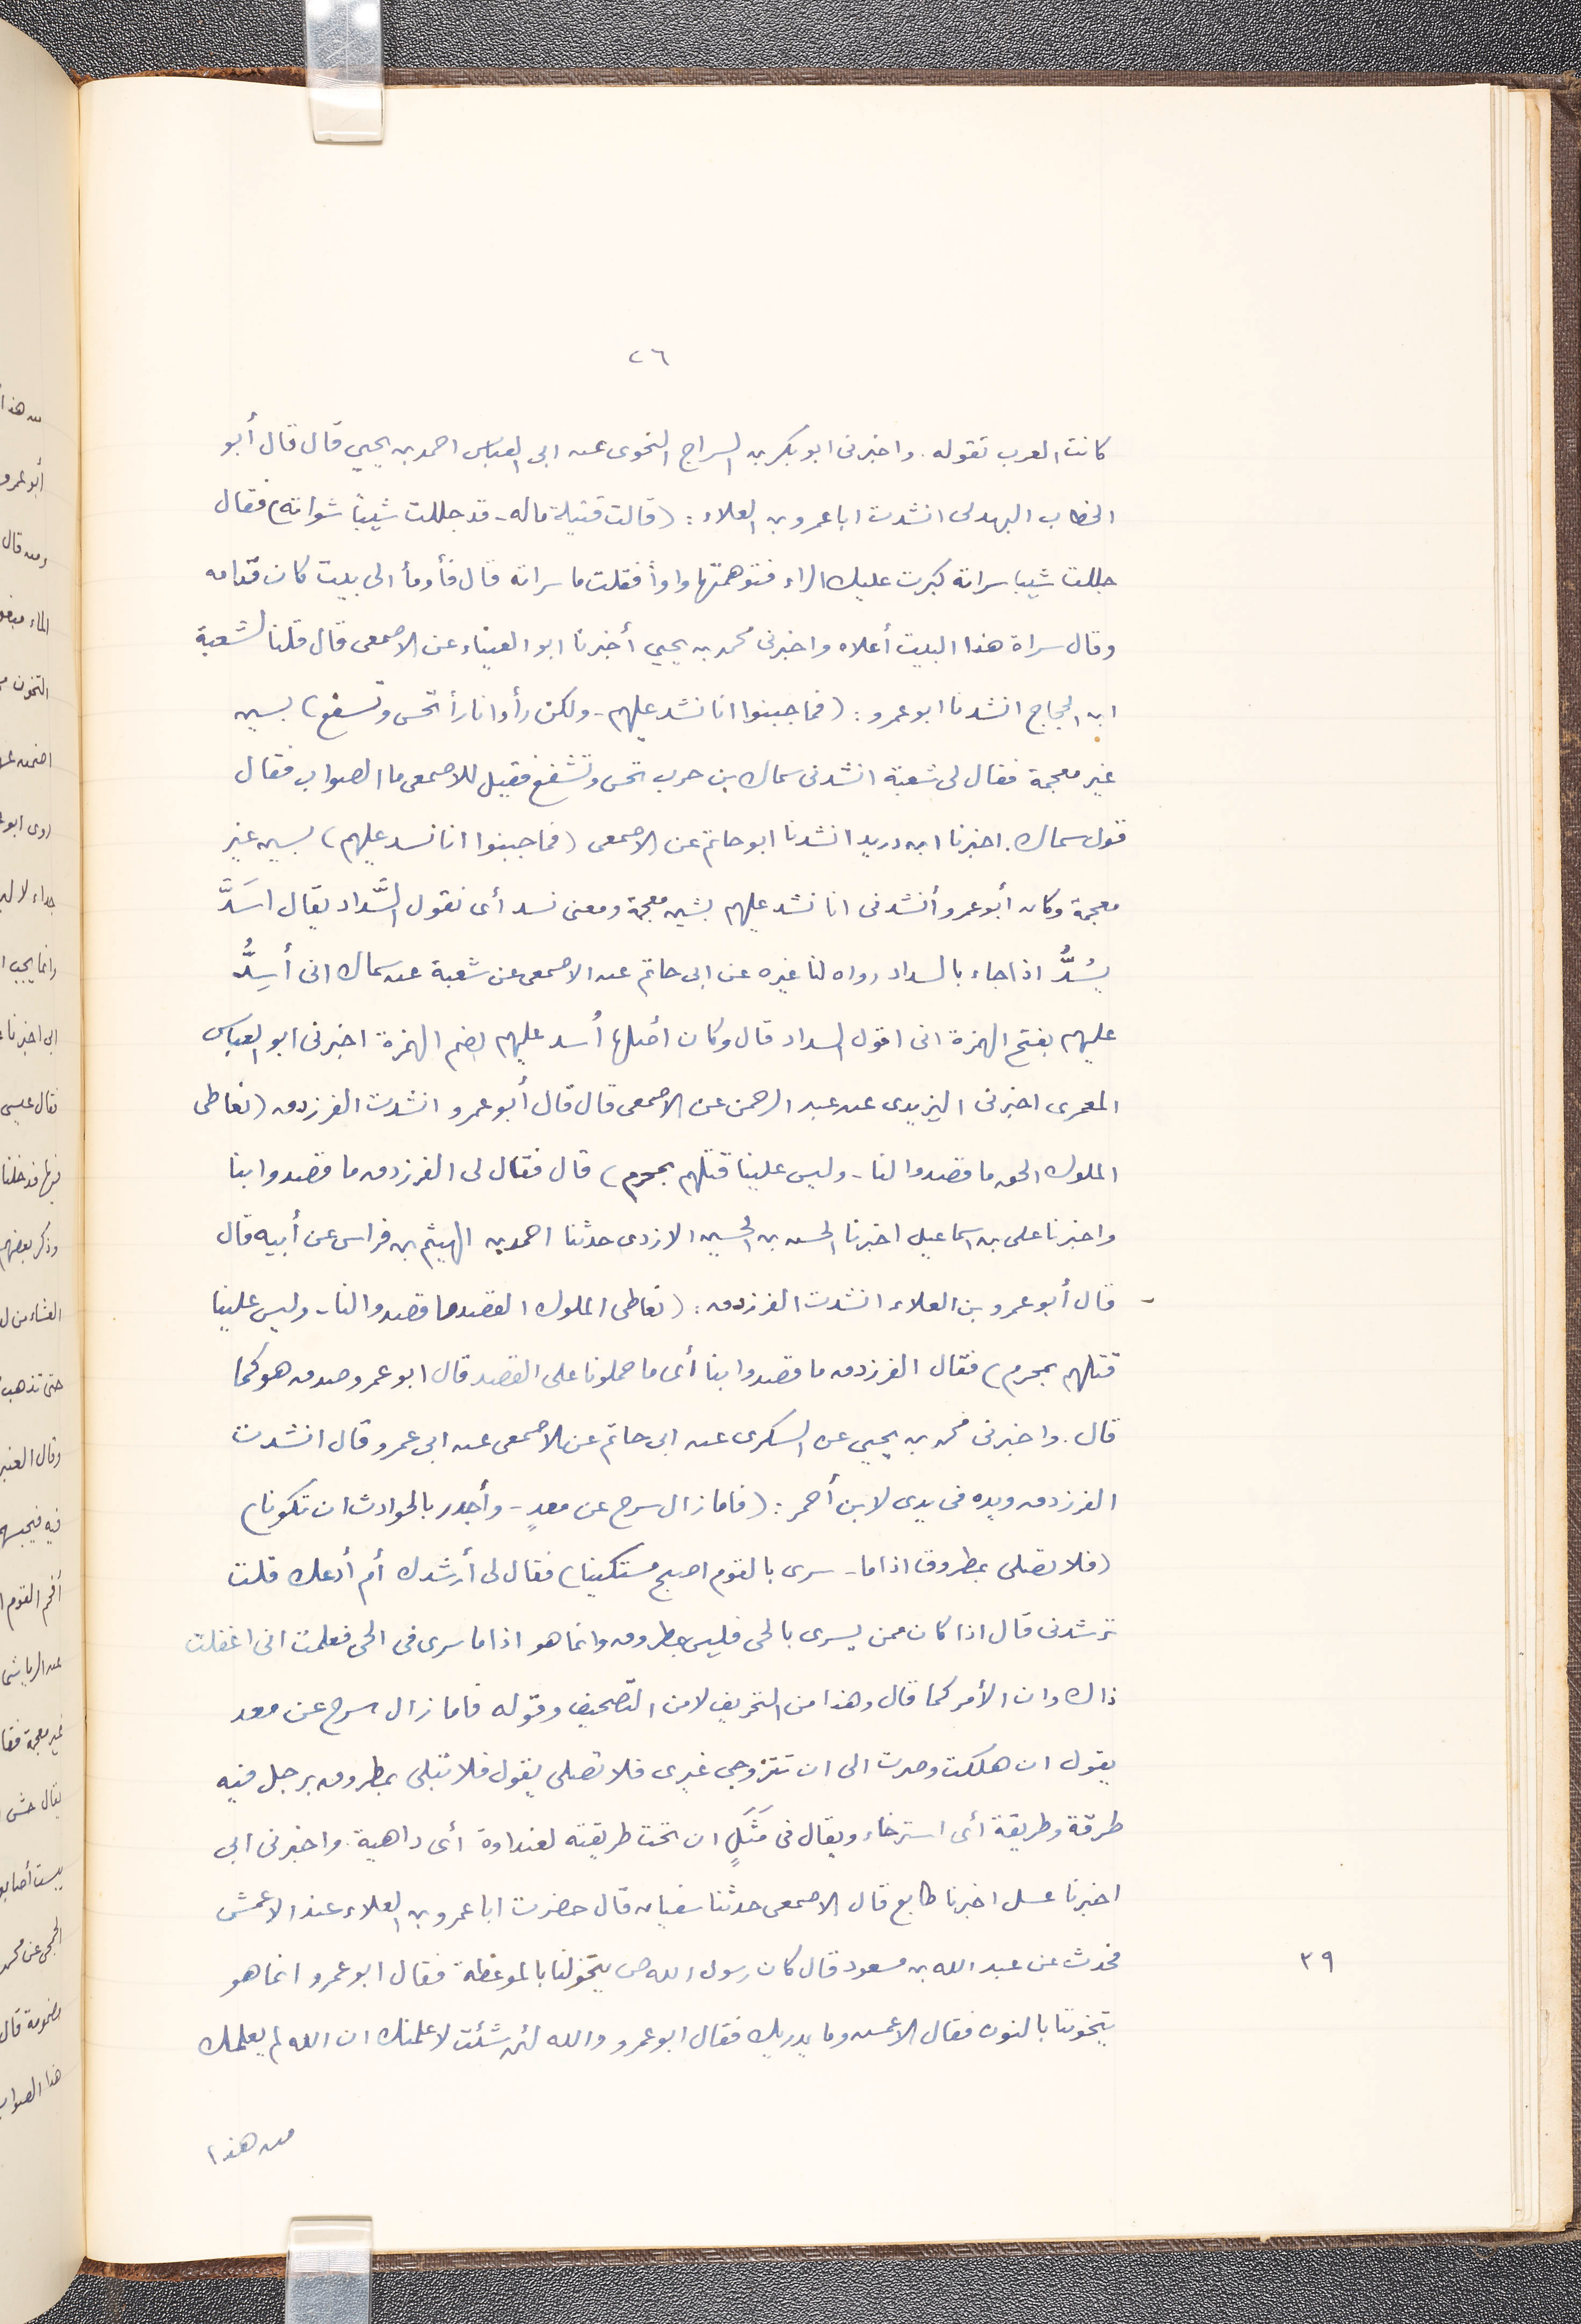 ٢٦
كانت العرب تقوله. واخبرنى ابو بكر بن السراج النحوى عن ابى العباس احمد بن يحيي قال قال أبو
الخطاب البهدلى انشدت ابا عمرو بن العلاء : (قالت قتيلة ماله - قد جللت شيبا شواته) فقال
جللت شيبا سراته كبرت عليك الراء فتوهمتها واوا فقلت ما سراته قال فأومأ الى بيت كان قدامه
وقال سراة هذا البيت أعلاه واخبرنى محمد بن يحيي أخبرنا ابو العيناء عن الاصمعى قال قلنا لشعبة
ابن الحجاج انشدنا ابو عمرو : (فما جبنوا انا نشد عليهم - ولكن رأوا نارا تحس وتسفع) بسين
غير معجمة فقال لى شعبة انشدنى سماك بن حرب تحس وتشفع فقيل للاصمعى ما الصواب فقال
قول سماك. اخبرنا ابن دريد انشدنا ابو حاتم عن الاصمعى (فما جبنوا انا نسد عليهم) بسين غير
معجمة وكان أبو عمرو أنشدنى انا نشد عليهم بشين معجمة ومعنى نسد أى نقول السَّداد يقال اسَدَّ
يسُدُّ اذا جاء بالسداد رواه لنا غيره عن ابى حاتم عن الاصمعى عن شعبة عن سماك انى أسِدُّ
عليهم بفتح الهمزة انى اقول السداد قال وكان أصلها أُسد عليهم بضم الهمزة اخبرنى ابو العباس
المعمرى اخبرنى اليزيدى عن عبد الرحمن عن الاصمعى قال قال أبو عمرو انشدت الفرزدق (نعاطى
الملوك الحق ما قصدوا لنا - وليس علينا قتلهم بمحرم) قال فقال لى الفرزدق ما قصدوا بنا
واخبرنا على بن اسماعيل اخبرنا الحسن بن الحسين الازدى حدثنا احمد بن الهيثم بن فراس عن أبيه قال
قال أبو عمرو بن العلاء انشدت الفرزدق : (نعاطى الملوك القصد ما قصدوا لنا - وليس علينا
قتلهم بمحرم) فقال الفرزدق ما قصدوا بنا أى ما حملونا على القصد قال ابو عمرو صدق هو كما
قال. واخبرنى محمد بن يحيي عن السكرى عن ابى حاتم عن الاصمعى عن ابى عمرو قال انشدت
الفرزدق ويده فى يدى لابن أحمر : (فاما زال سرج عن معدٍ - وأجدر بالحوادث ان تكونا)
(فلا تصلى بمطروق اذا ما - سرى بالقوم اصبح مستكينا) فقال لى أرشدك أم أدعك قلت
ترشدنى قال اذا كان ممن يسرى بالحى فليس بمطروق وانما هو اذا ما سرى فى الحى فعلمت انى اغفلت
ذاك وان الأمر كما قال وهذا من التحريف لا من التصحيف وقوله فاما زال سرج عن معد
يقول ان هلكت وصرت الى ان تتزوجى غيرى فلا تصلى يقول فلا تبتلى بمطروق برجل فيه
طرقة وطريقة أى استرخاء ويقال فى مَثَلٍ ان تحت طريقته لعنداوة أى داهية. واخبرنى ابى
اخبرنا عسل اخبرنا طايع قال الاصمعى حدثنا سفيان قال حضرت ابا عمرو بن العلاء عند الاعمش
فحدث عن عبد الله بن مسعود قال كان رسول الله ص يتخولنا بالموعظة فقال ابو عمرو انما هو
٣٩
يتخوننا بالنون فقال الاعمش وما يدريك فقال ابو عمرو والله لئن شئت لاعلمنك ان الله لم يعلمك
من هذا